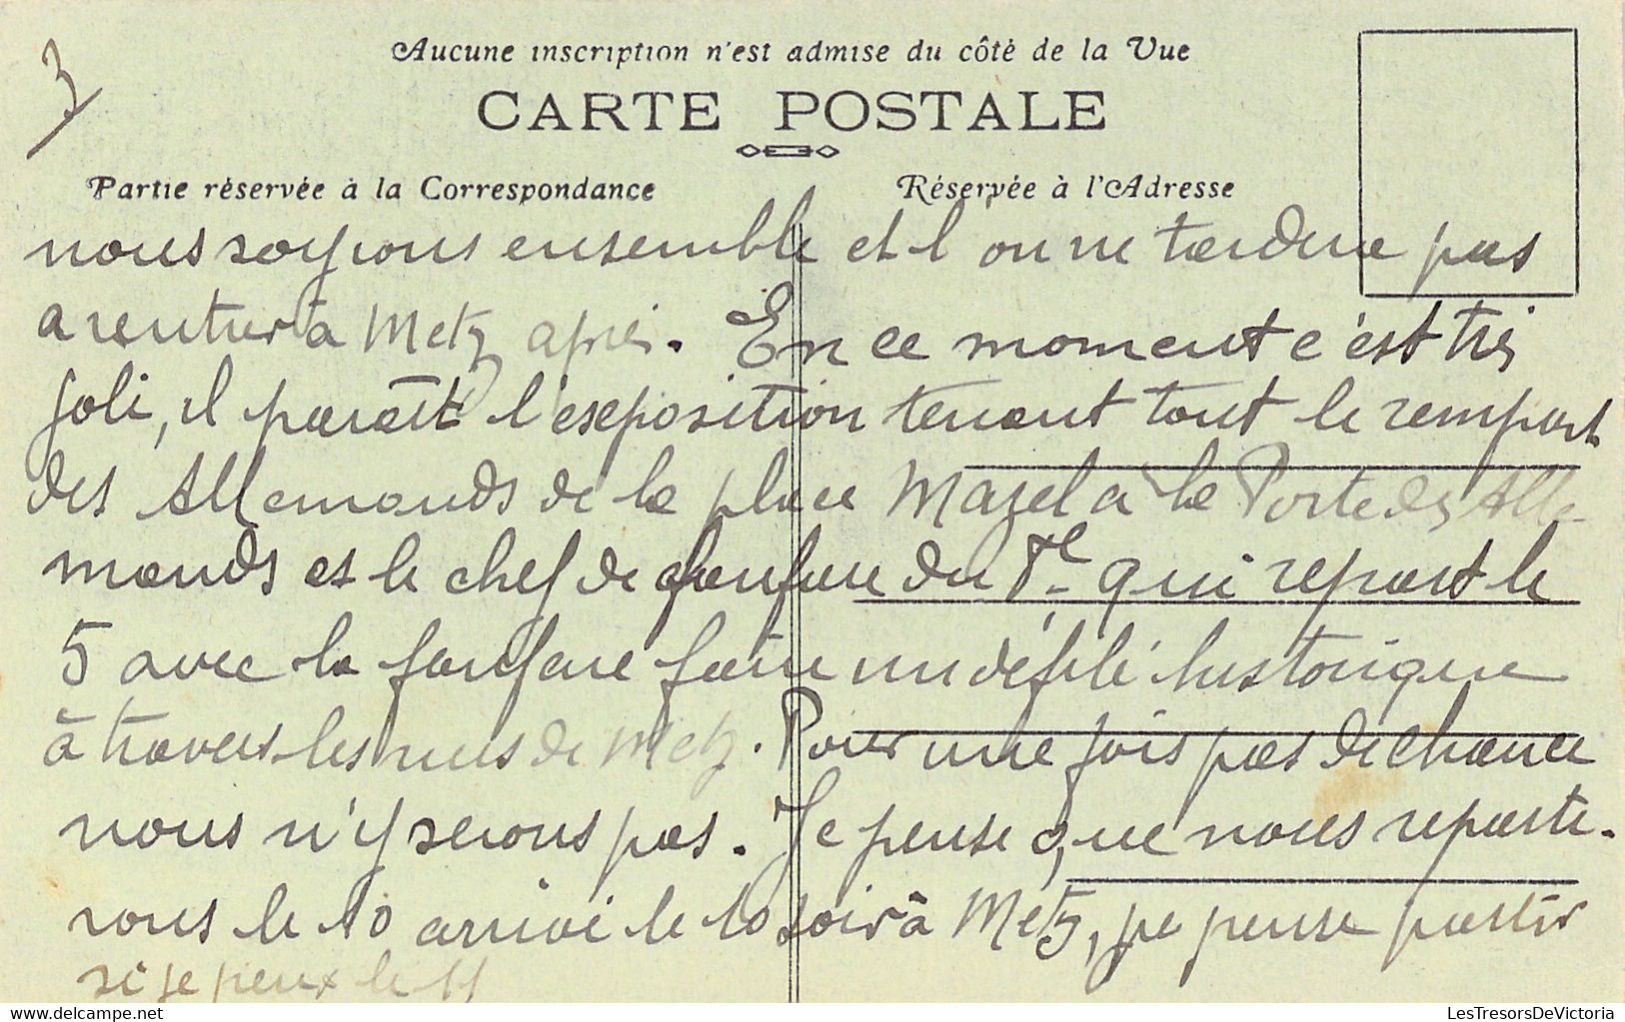 3
Aucune inscription n'est admise du côté de la Vue
CARTE POSTALE
Partie réservée à la Correspondance
Réservée à l'Adresse
nous soyions ensemble et l'on ne tardera pas
a rentrer à Metz après. En ce moment c'est très
joli, il parait l'exposition tenant tout le rempart
des Allemands de la place Mazel a la Porte des Alle-
mands et le chef de fanfare du 8e qui repart le
5 avec la fanfare faire un défilé historique
à travers les rues de Metz. Pour une fois pas de chance
nous n'y serons pas. Je pense que nous reparti-
rons le 10 arrivé le 10 soir à Metz, je pense partir
si je peux le 11
www.delcampe.net
LesTresorsDeVictoria